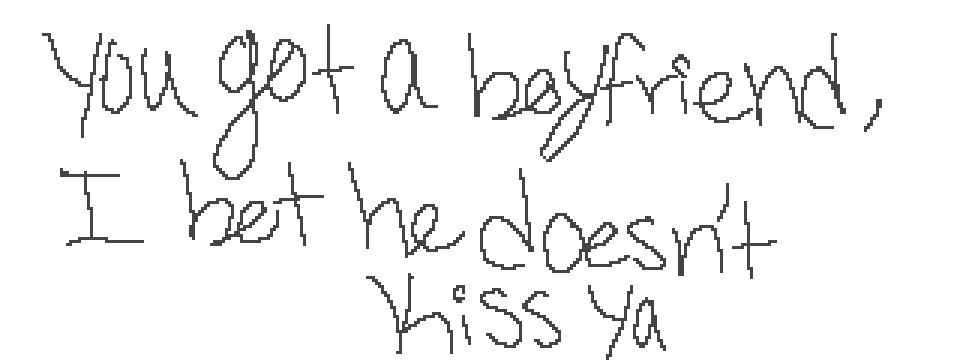 You got a boyfriend,
I bet he doesn't
Kiss ya